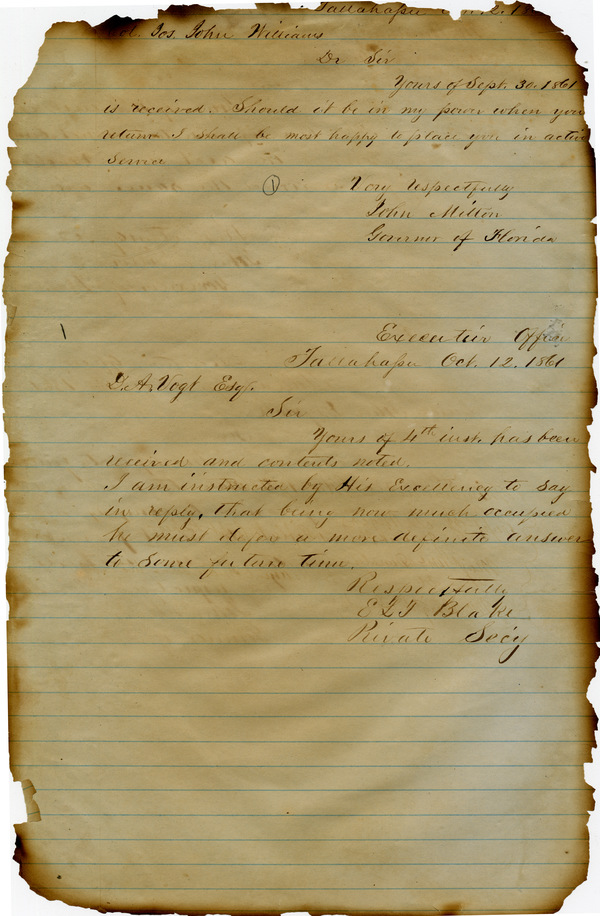 Tallahassee
Col. Jos. John Williams
Dr Sir
Yours of Sept. 30. 1861
is received. Should it be in my power when you
return I shall be most happy to place you in active
Service
① Very respectfully
John Milton
Governor of Florida
Executive Office
1
Tallahassee Oct. 12. 1861
D. A. Vogt Esqr.
Sir
Yours of 4th inst. has been
received and contents noted.
I am instructed by His Excellency to say
in reply, that being now much occupied
he must defer a more definite answer
to some future time.
Respectfully
Blake
Private Secy